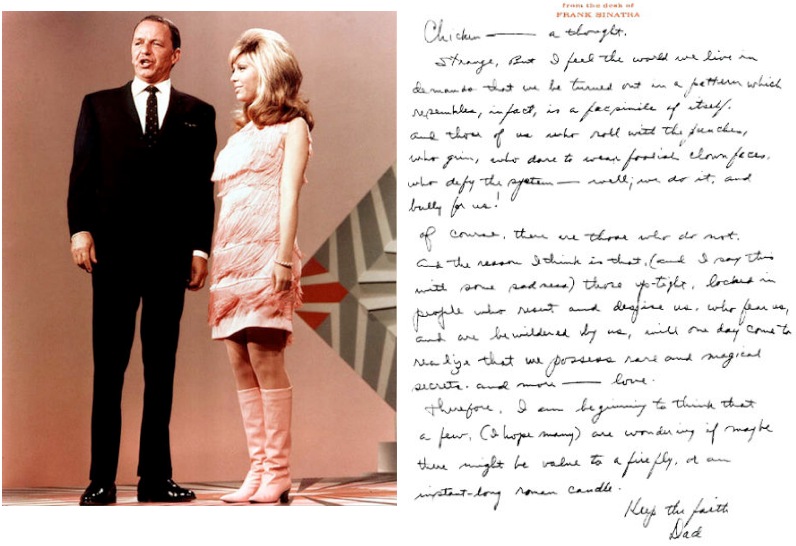 from the desk of
FRANK SINATRA
Chicken — a thought.
Strange, But I feel the world we live in
demands that we be turned out in a pattern which
resembles, in fact, is a facsimile of itself.
and those of us who roll with the punches,
who grin, who dare to wear foolish clown faces,
who defy the system — well, we do it, and
bully for us!
Of course, there are those who do not.
and the reason I think is that, (and I say this
with some sadness) those up-tight, locked in
people who resent and despise us, who fear us,
and are bewildered by us, will one day come to
realize that we possess rare and magical
secrets. and more — love.
Therefore, I am beginning to think that
a few, (I hope many) are wondering if maybe
there might be value to a firefly, or an
instant-long roman candle.
Keep the faith
Dad